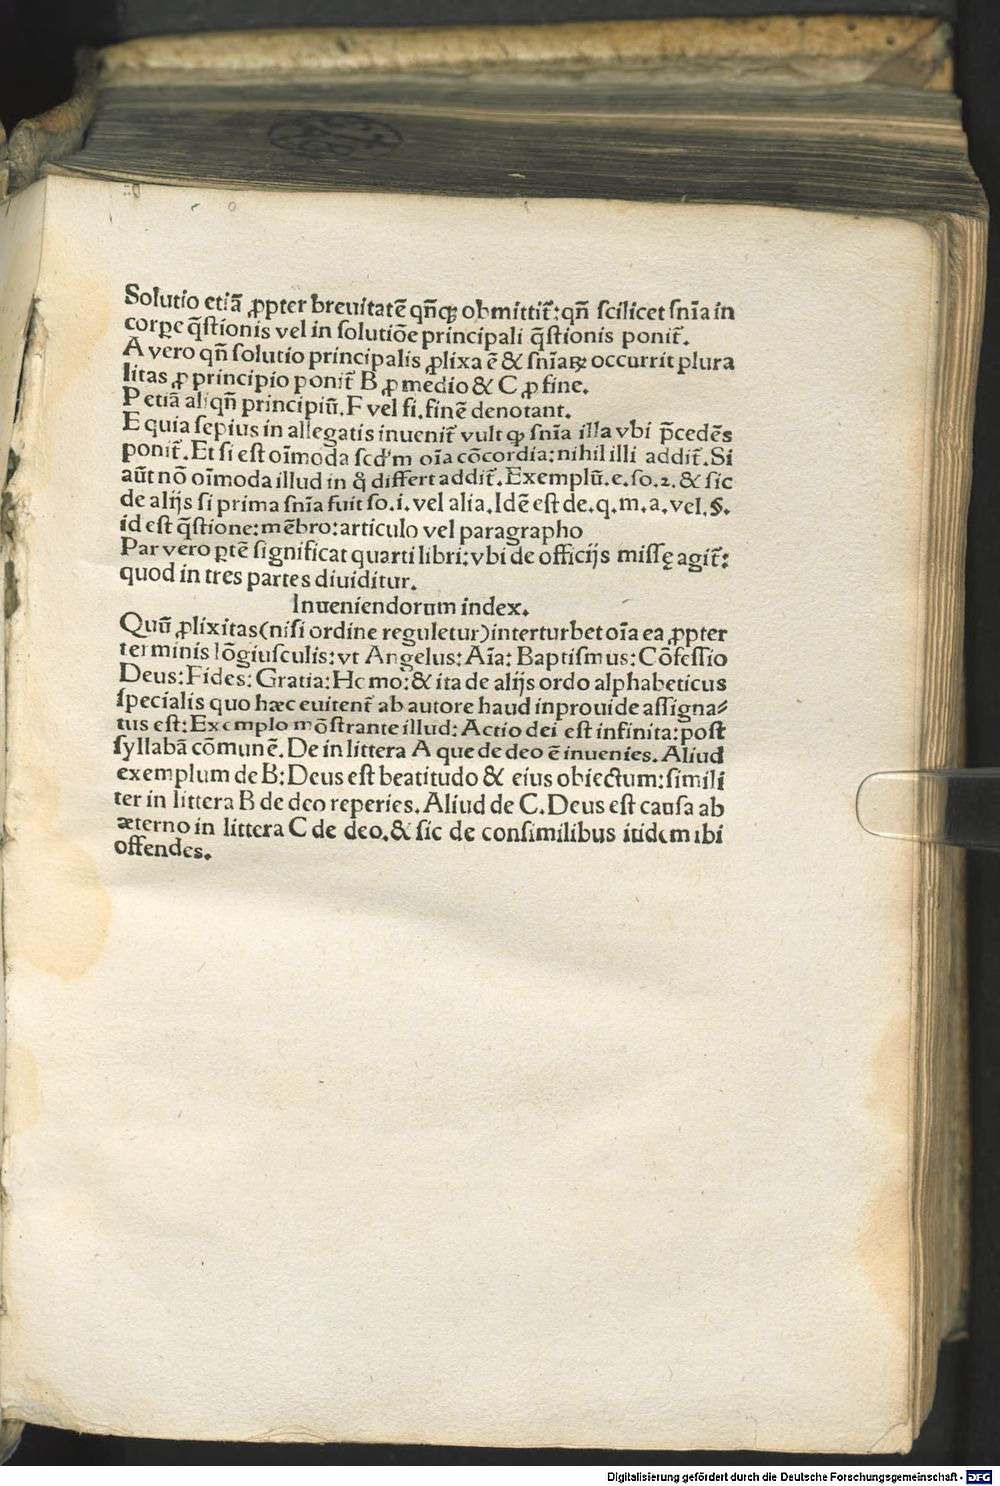 Solutio etiā ꝓpter breuitatē qn̄qꝫ obmittit᷑:qn̄ ſcilicet ſnīa in
corꝑe q̄ſtionis vel in ſolutiōe principali q̄ſtionis ponit᷑.
A vero qn̄ ſolutio principalis ꝓlixa ē & ſnīaꝝ occurrit plura
litas ꝓ principio ponit᷑ B ꝓ medio & C ꝓ fine.
P etiā aliqn̄ principiū.F vel fi.finē denotant.
E quia ſepius in allegatis inuenit᷑ vult ꝙ ſnīa illa vbi p̄cedēs
ponit᷑.Et ſi eſt oīmoda ſcd'm oīa cōcordia:nihil illi addit᷑.Si
aūt nō oīmoda illud in q̊ differt addit᷑.Exemplū.e.ſo.2.& ſic
de alijs ſi prima ſnīa fuit ſo.i.vel alia.Idē eſt de.q.m.a.vel.§.
id eſt q̄ſtione:mēbro:articulo vel paragrapho
Par vero ꝑtē ſignificat quarti libri:vbi de officijs miſſę agit᷑:
quod in tres partes diuiditur.
Inueniendorum index.
Quū ꝓlixitas(niſi ordine reguletur)interturbet oīa ea ꝓpter
terminis lōgiuſculis:vt Angelus:Aīa:Baptiſmus:Cōfeſſio
Deus:Fides:Gratia:Homo:& ita de alijs ordo alphabeticus
ſpecialis quo hæc euitent᷑ ab autore haud inprouide aſſigna⸗
tus eſt:Exemplo mōſtrante illud:Actio dei eſt infinita:poſt
ſyllabā cōmunē.De in littera A que de deo ē inuenies.Aliud
exemplum de B:Deus eſt beatitudo & eius obiectum:ſimili
ter in littera B de deo reperies.Aliud de C.Deus eſt cauſa ab
æterno in littera C de deo.& ſic de conſimilibus itidem ibi
offendes.
Digitalisierung gefördert durch die Deutsche Forschungsgemeinschaft - DFG